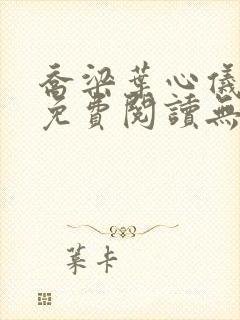 喬梁葉心儀
免費閱讀無
葉卡